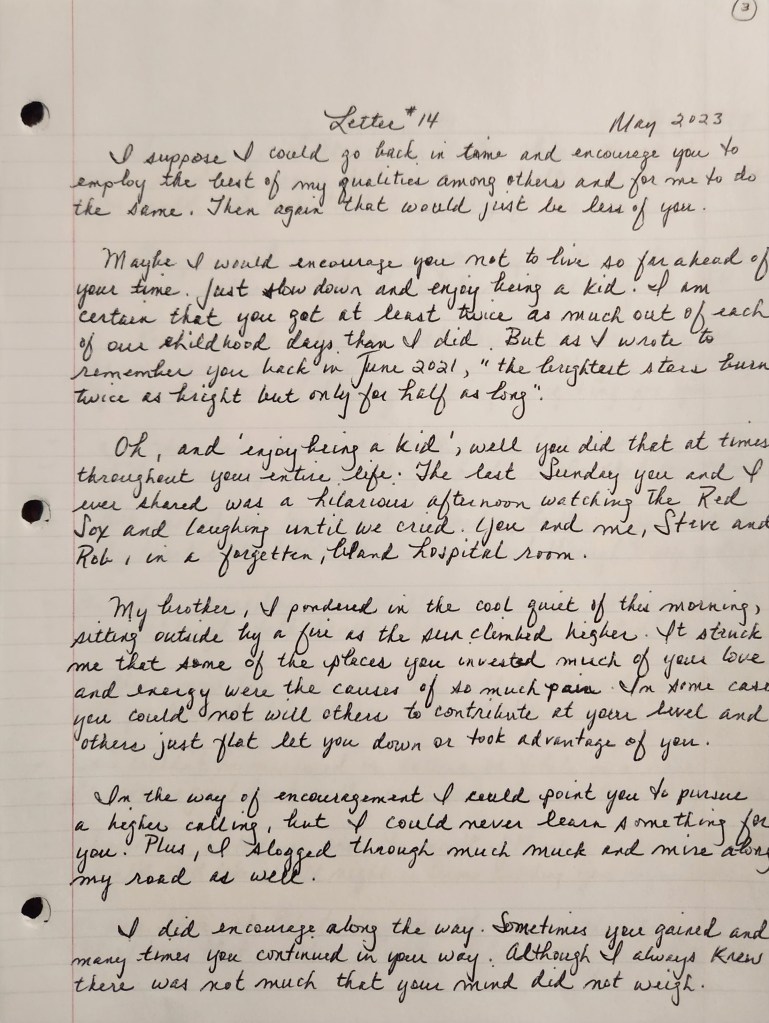 3
Letter #14 May 2023
I suppose I could go back in time and encourage you to
employ the best of my qualities among others and for me to do
the same. Then again that would just be less of you.
Maybe I would encourage you not to live so far ahead of
your time. Just slow down and enjoy being a kid. I am
certain that you got at least twice as much out of each
of our childhood days than I did. But as I wrote to
remember you back in June 2021, "the brightest stars burn
twice as bright but only for half as long".
Oh, and 'enjoy being a kid', well you did that at times
throughout your entire life. The last Sunday you and I
ever shared was a hilarious afternoon watching The Red
Sox and laughing until we cried. You and me, Steve and
Rob, in a forgotten, bland hospital room.
My brother, I pondered in the cool quiet of this morning,
sitting outside by a fire as the sun climbed higher. It struck
me that some of the places you invested much of your love
and energy were the causes of so much pain. In some case
you could not will others to contribute at your level and
others just flat let you down or took advantage of you.
In the way of encouragement I could point you to pursue
a higher calling, but I could never learn something for
you. Plus, I slogged through much muck and mire along
my road as well.
I did encourage along the way. Sometimes you gained and
many times you continued in your way. Although I always knew
there was not much that your mind did not weigh.